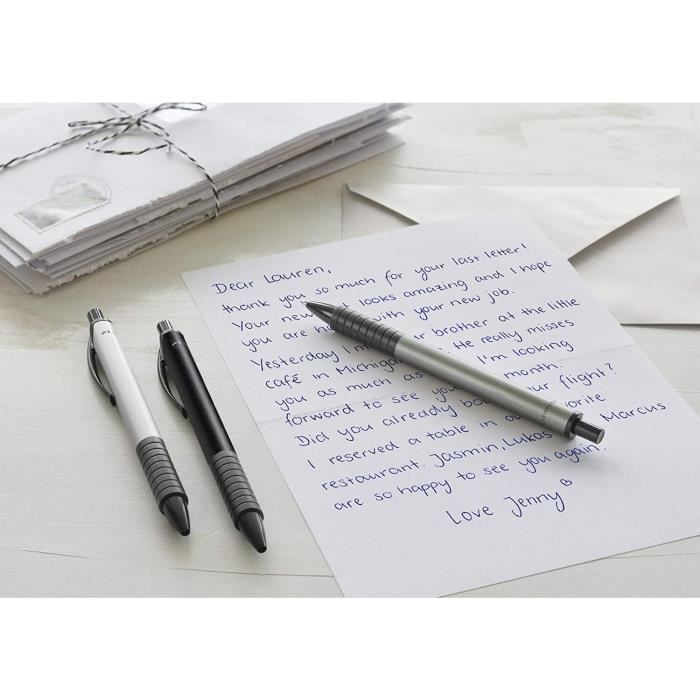 Dear Lauren,
thank you so much for your last letter!
Your new looks amazing and I hope
you are with your new job.
Yesterday I brother at the little
café in Michigan He really misses
you as much as I'm looking
forward to see you month.
Did you already your flight?
I reserved a table in our
restaurant. Jasmin, Lukas Marcus
are so happy to see you again.
Love Jenny